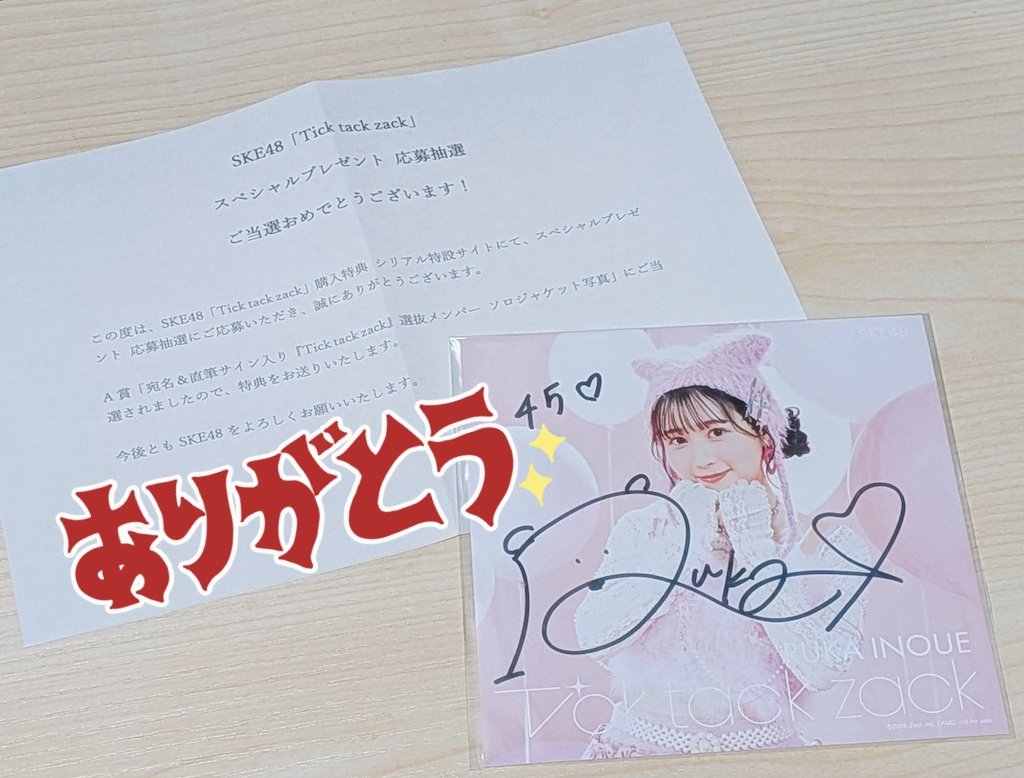 SKE48「Tick tack zack」
スペシャルプレゼント 応募抽選
ご当選おめでとうございます！
この度は、SKE48「Tick tack zack」購入特典 シリアル特設サイトにて、スペシャルプレゼ
ント 応募抽選にご応募いただき、誠にありがとうございます。
A賞「宛名＆直筆サイン入り『Tick tack zack』選抜メンバー ソロジャケット写真」にご当
選されましたので、特典をお送りいたします。
今後とも SKE48 をよろしくお願いいたします。
ありがとう
SKE48
45♡
Ruka
RUKA INOUE
Tick tack zack